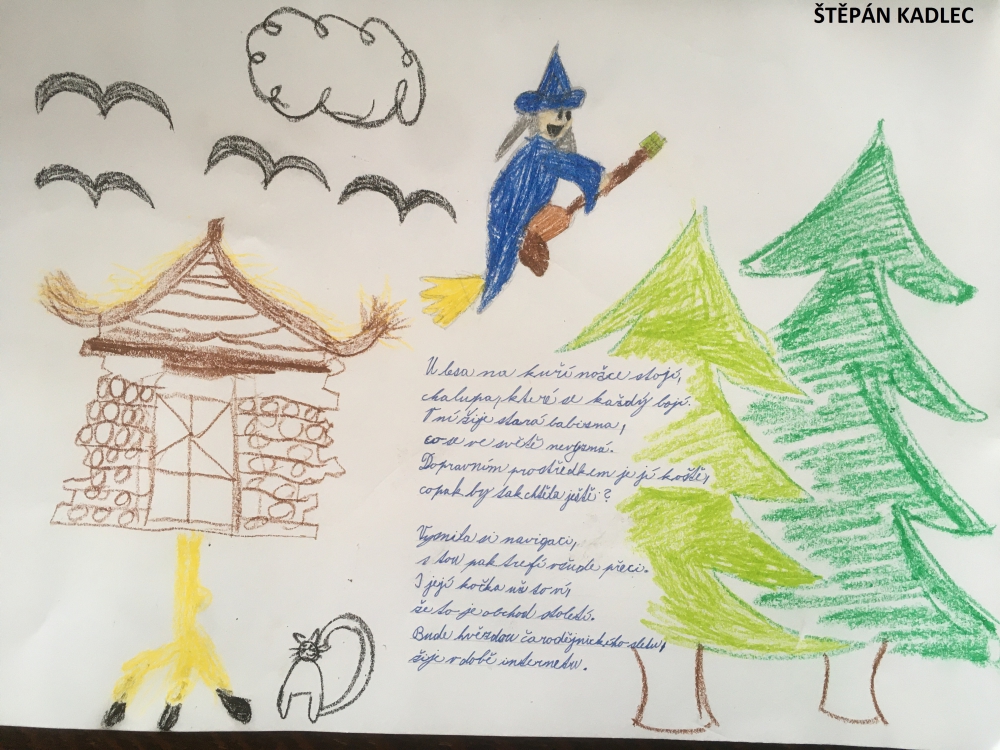 ŠTĚPÁN KADLEC
U lesa na kuří nožce stojí,
chalupa, které se každý bojí.
V ní žije stará babizna,
co se ve světě nevyzná.
Dopravním prostředkem je jí koště,
copak by tak chtěla ještě?
Vysnila si navigaci,
s tou pak trefí všude přeci.
I její kočka už to ví,
že to je obchod století.
Bude hvězdou čarodějnického sletu,
žije v době internetu.